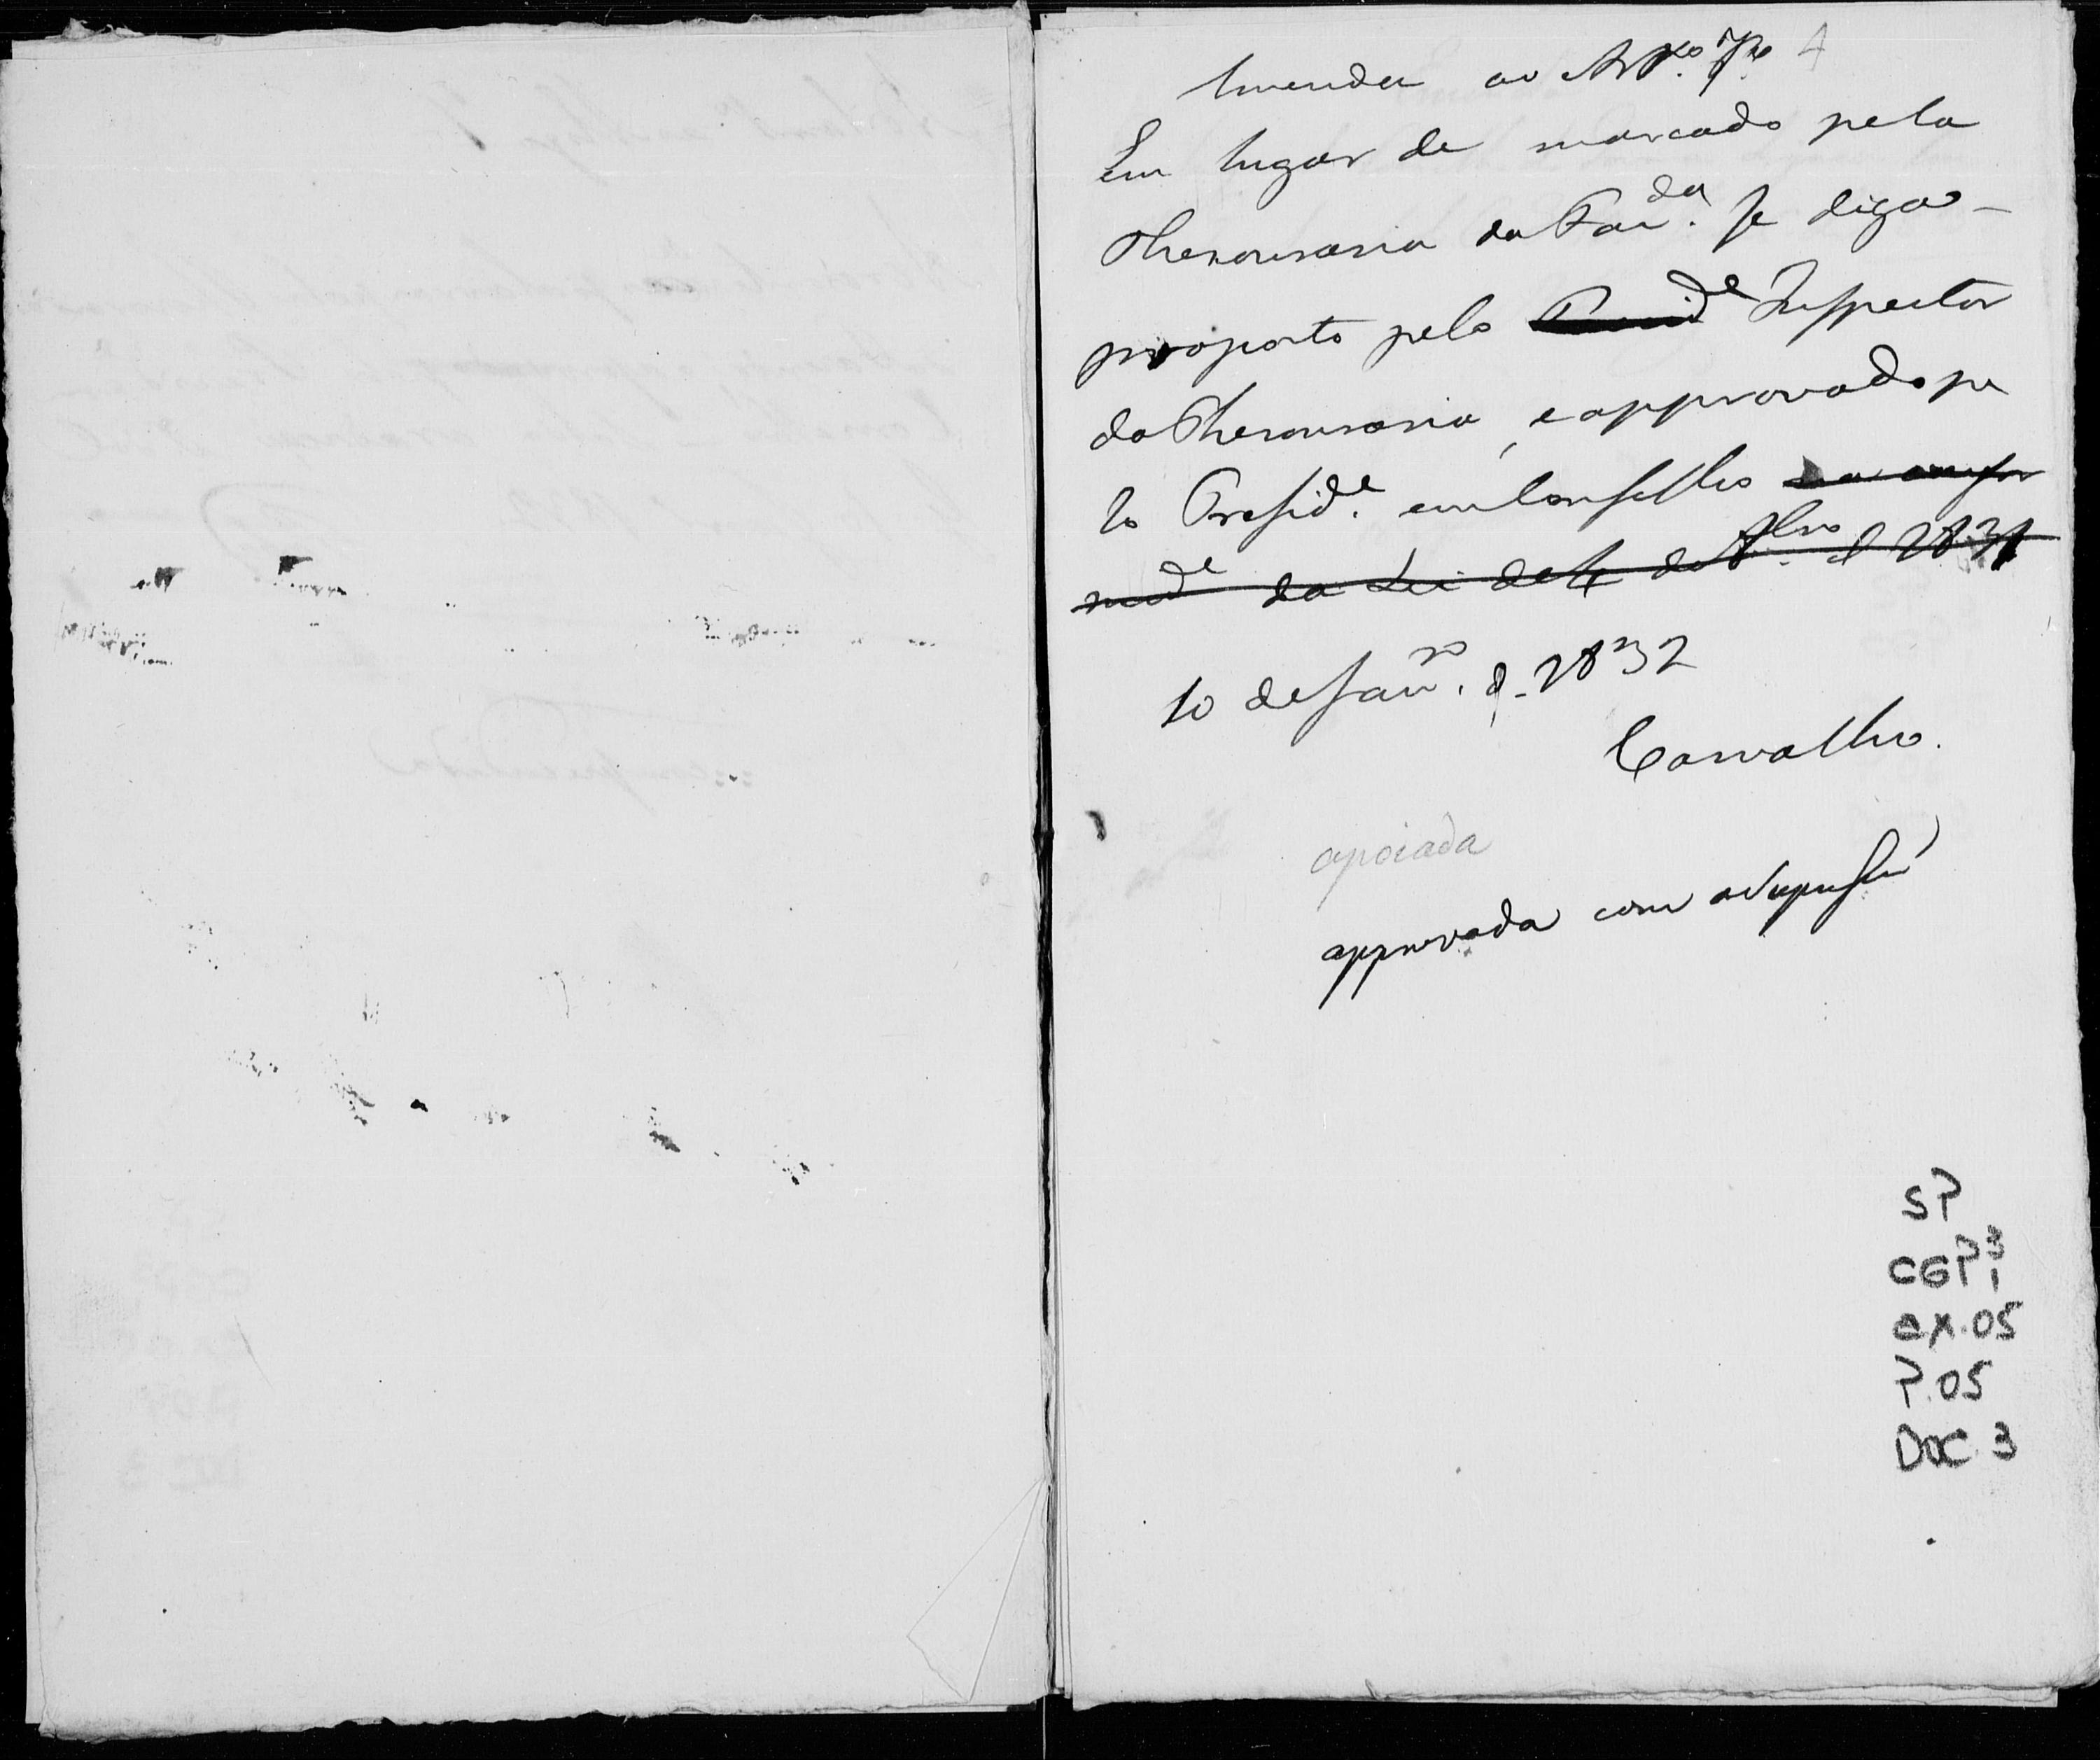 Emenda ao Art.º 7º 4
Em lugar de marcado pela
Thesouraria da Faz.da se diga -
proposto pelo Presid.e Inspector
da Thesouraria, e approvado pe
lo Presid.e em Conselho na confor
mid.e da Lei de 4 de 8br.o d 1831
10 de Jan.ro d. 1832
Carvalho.
apoiada
approvada com a suppressão
SP
CGP1 3
cx. 05
P. 05
DOC. 3